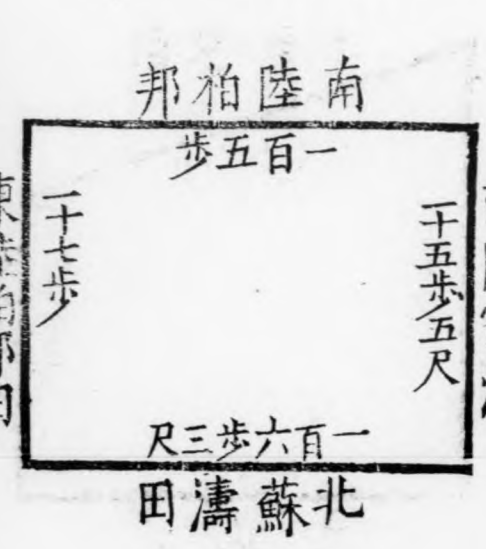 南陸柏邦
一百五步
一十五步五尺
一十七步
一百六步三尺
北蘇濤田